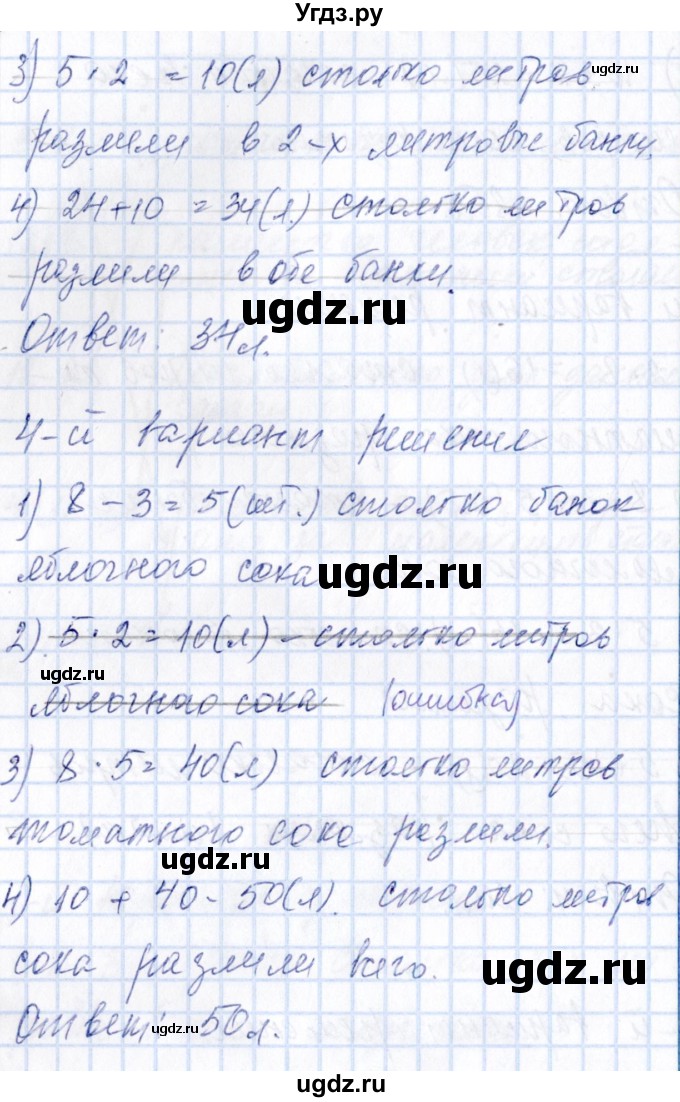 Угдз.ру
3) 5 · 2 = 10(л) столько литров
ugdz.ru
размили в 2-х литровые банки.
4) 24 + 10 = 34(л.) столько литров
размили в обе банки.
ugdz.ru
Ответ: 34л.
4-й вариант решения
1) 8 - 3 = 5 (шт.) столько банок
яблочного сока
ugdz.ru
2) 5 · 2 = 10(л) - столько литров
ugdz.ru
яблочного сока (ошибка)
3) 8 · 5 = 40(л) столько литров
томатного сока размили.
ugdz.ru
4) 10 + 40 - 50(л). столько литров
сока размили всего.
ugdz.ru
Ответ: 50л.
ugdz.ru
ugdz.ru